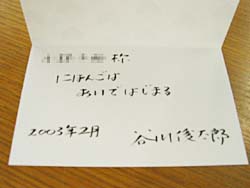 様
にほんごは
あいではじまる
2003年2月 谷川俊太郎